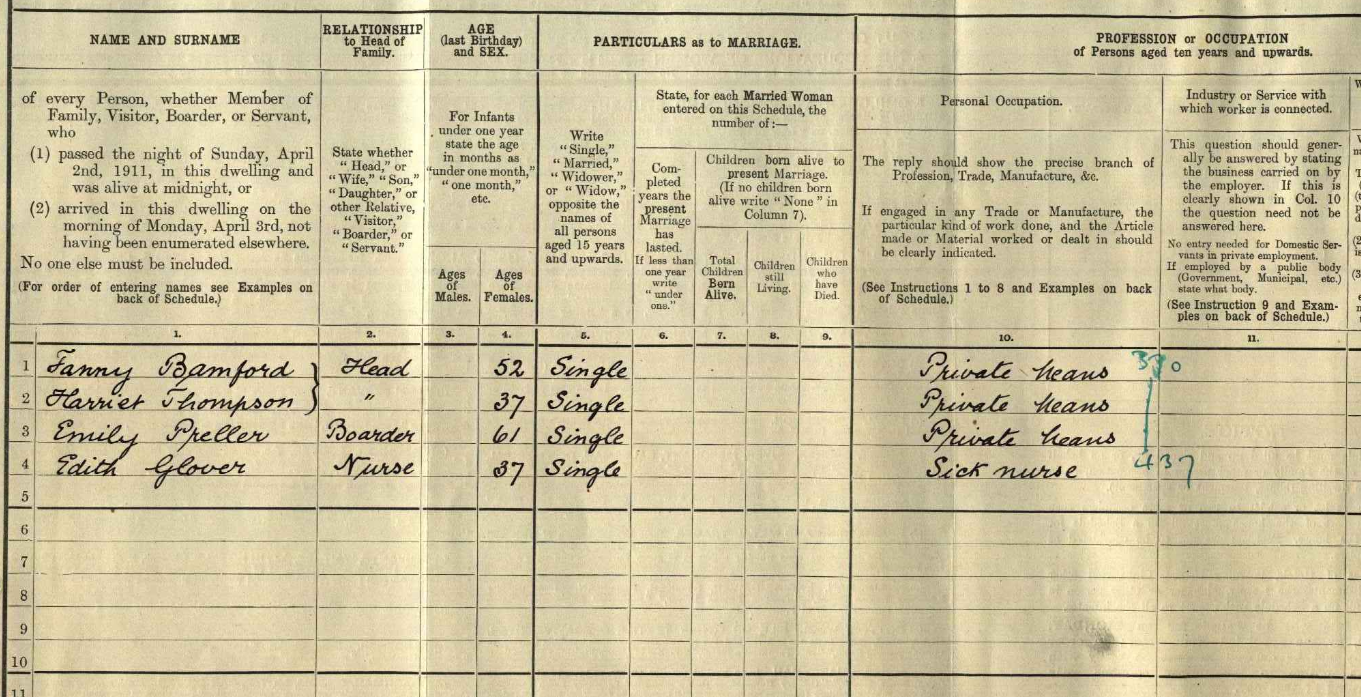 NAME AND SURNAME
RELATIONSHIP
to Head of
Family.
AGE
(last Birthday)
and SEX.
PARTICULARS as to MARRIAGE.
PROFESSION or OCCUPATION
of Persons aged ten years and upwards.
of every Person, whether Member of
Family, Visitor, Boarder, or Servant,
who
(1) passed the night of Sunday, April
2nd, 1911, in this dwelling and
was alive at midnight, or
(2) arrived in this dwelling on the
morning of Monday, April 3rd, not
having been enumerated elsewhere.
No one else must be included.
(For order of entering names see Examples on
back of Schedule.)
State whether
"Head," or
"Wife," "Son,"
"Daughter," or
other Relative,
"Visitor,"
"Boarder," or
"Servant."
For Infants
under one year
state the age
in months as
"under one month,"
"one month,"
etc.
Ages
of
Males.
Ages
of
Females.
Write
"Single,"
"Married,"
"Widower,"
or "Widow,"
opposite the
names of
all persons
aged 15 years
and upwards.
State, for each Married Woman
entered on this Schedule, the
number of:—
Com-
pleted
years the
present
Marriage
has
lasted.
If less than
one year
write
"under
one."
Children born alive to
present Marriage.
(If no children born
alive write "None" in
Column 7).
Total
Children
Born
Alive.
Children
still
Living.
Children
who
have
Died.
Personal Occupation.
The reply should show the precise branch of
Profession, Trade, Manufacture, &c.
If engaged in any Trade or Manufacture, the
particular kind of work done, and the Article
made or Material worked or dealt in should
be clearly indicated.
(See Instructions 1 to 8 and Examples on back
of Schedule.)
Industry or Service with
which worker is connected.
This question should gener-
ally be answered by stating
the business carried on by
the employer. If this is
clearly shown in Col. 10
the question need not be
answered here.
No entry needed for Domestic Ser-
vants in private employment.
If employed by a public body
(Government, Municipal, etc.)
state what body.
(See Instruction 9 and Exam-
ples on back of Schedule.)
1. 2. 3. 4. 5. 6. 7. 8. 9. 10. 11.
1 Fanny Bamford Head 52 Single Private Means 330
2 Harriet Thompson " 37 Single Private Means
3 Emily Preller Boarder 61 Single Private Means
4 Edith Glover Nurse 37 Single Sick nurse 437
5
6
7
8
9
10
11